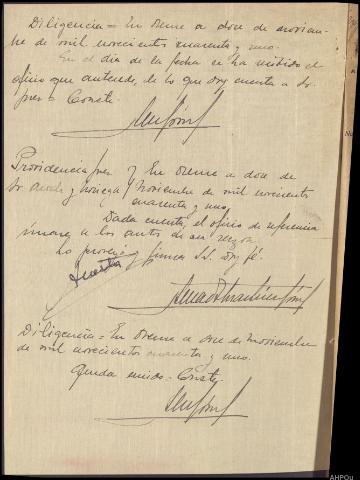 Diligencia = En Orense a doce de noviem-
bre de mil novecientos cuarenta y uno.
En el día de la fecha se ha recibido el
oficio que antecede, de lo que doy cuenta a S.
Consta.
Providencia Juez En Orense a doce de
Sr. y noviembre de mil novecientos
cuarenta y uno.
Dada cuenta, el oficio de referencia
únase a los autos de su razón.
Lo proveyó y firma S.S. doy fé.
Diligencia = En Orense a doce de noviembre
de mil novecientos cuarenta y uno.
Queda unido. Consta.
AHPOu